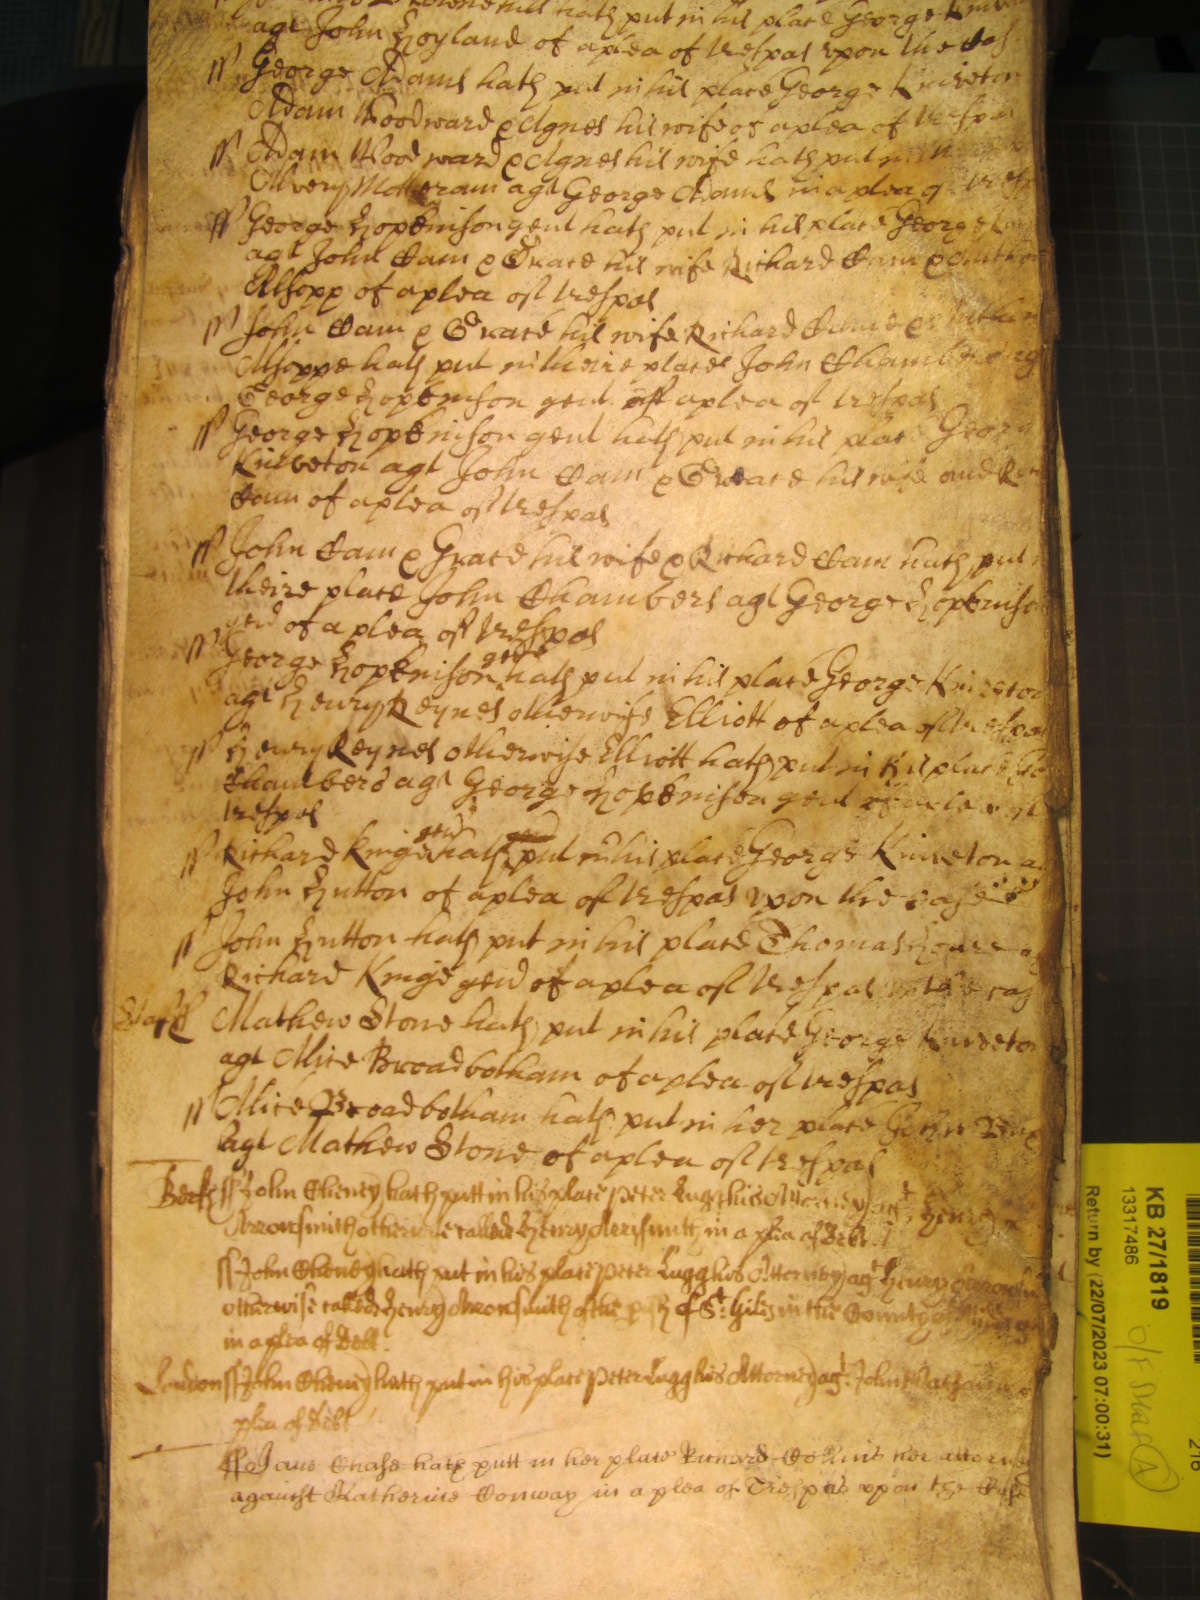 hath put in his place George
agt John Hoyland of a plea of trespas upon the Cas
ss George Adams hath put in his place George Kniveton
Adam Woodward & Agnes his wife of a plea of trespas
ss Adam Woodward & Agnes his wife hath put in
Olivery Motteram agt George Adams in a plea of tresp
ss George Hopkinson gent hath put in his place George
agt John Cam & Grace his wife Richard Cam &
Allsopp of a plea of trespas
ss John Cam & Grace his wife Richard Cam &
Allsoppe hath put in theire places John Chambers agt
George Hopkinson gent of a plea of trespas
ss George Hopkinson gent hath put in his place George
Kniveton agt John Cam & Grace his wife and Ric
Cam of a plea of trespas
ss John Cam & Grace his wife & Richard Cam hath put
theire place John Chambers agt George Hopkinson
gent of a plea of trespas
ss George Hopkinson gent hath put in his place George Kniveton
agt Henry Reynes otherwise Elliott of a plea of trespas
ss Henry Reynes otherwise Elliott hath put in his place
Chambers agt George Hopkinson gent of a plea of
trespas
ss Richard Kinge gent hath put in his place George Kniveton a
John Hutton of a plea of trespas upon the case
ss John Hutton hath put in his place Thomas
Richard Kinge gent of a plea of trespas cas
ss Mathew Stone hath put in his place George Kniveton
agt Alice Broadbotham of a plea of trespas
ss Alice Broadbotham hath put in her place John
agt Mathew Stone of a plea of trespas
Berks ss John Cheney hath putt in his place Peter Lugg his Attorney agt Henry
Arrowsmith otherwise called Henry Arrismith in a plea of Debt
ss John Cheney hath put in his place Peter Lugg his Attorney agt Henry
otherwise called Henry Arrowsmith of the p'ish of St. Giles in the County of
in a plea of Debt.
London ss John Cheney hath put in his place Peter Lugg his Attorney agt. John
plea of Debt
ss Jane Chase hath putt in her place Richard her attorney
against Katherine Conway in a plea of Trespas upon the Case
KB 27/1819
13317486
Return by (22/07/2023 07:00:31)